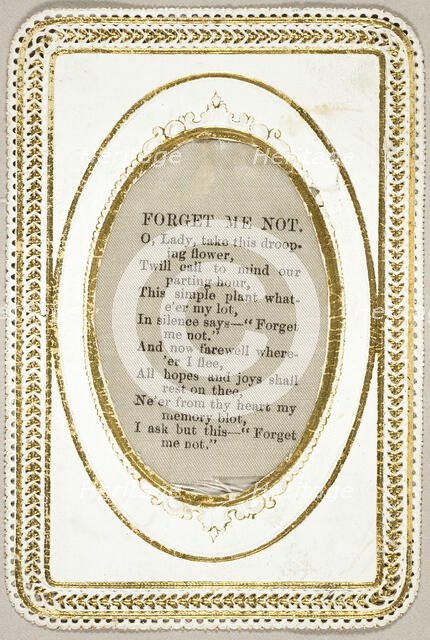 FORGET ME NOT.
O, Lady, take this droop-
ing flower,
Twill call to mind our
parting hour,
This simple plant what-
e'er my lot,
In silence says—"Forget
me not."
And now farewell where-
'er I flee,
All hopes and joys shall
rest on thee,
Ne'er from thy heart my
memory blot,
I ask but this—"Forget
me not."
Heritage
Heritage
Images
Heritage
Heritage